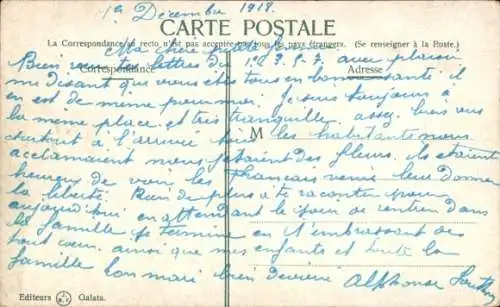 1er Décembre 1918.
CARTE POSTALE
La Correspondance au recto n'est pas acceptée par tous les pays étrangers. (Se renseigner à la Poste.)
Ma chère petite
Correspondance
Adresse
Bien reçu tes lettres du 1. 2. 3. 5. 7. avec plaisir
me disant que vous êtes tous en bonne santé il
en est de même pour moi. Je suis toujours à
la même place et très tranquille assez bien vus
M
surtout à l'arrivée tous les habitants nous
acclamaient nous jetaient des fleurs. ils étaient
heureux de voir les Français venir leur donner
la liberté. Rien de plus à te raconter pour
aujourd'hui en attendant le jour de rentrer dans
la famille je termine en t'embrassant de
tout cœur ainsi que mes enfants et toute la
famille ton mari bien dévoué Alphonse
Editeurs Galata.